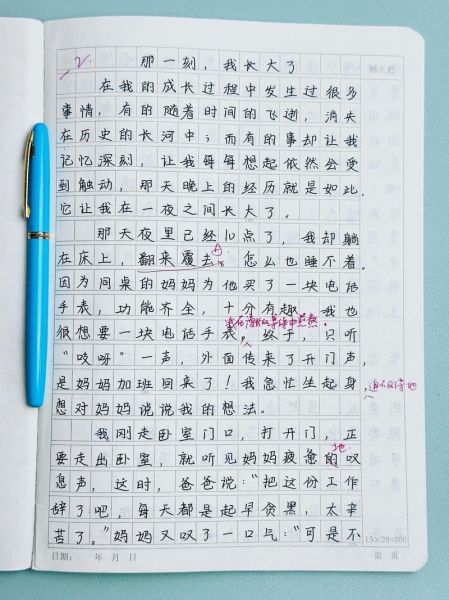 2.
那一刻，我长大了
在我的成长过程中发生过很多
事情，有的随着时间的飞逝，消失
在历史的长河中；而有的事却让我
记忆深刻，让我每每想起依然会受
到触动，那天晚上的经历就是如此，
它让我在一夜之间长大了。
那天夜里已经10点了，我却躺
在床上，翻来覆去，怎么也睡不着。
因为同桌的妈妈为他买了一块电话
手表，功能齐全，十分有趣，我也
很想要一块电话手表。终于，只听
“吱呀”一声，外面传来了开门声，
是妈妈加班回来了！我急忙坐起身，
迫不及待地
想对妈妈说说我的想法。
我刚走卧室门口，打开门，正
要走出卧室，就听见妈妈疲惫的叹
地
息声，这时，爸爸说：“把这份工作
辞了吧，每天都是起早贪黑，太辛
苦了。”妈妈又叹了一口气：“可是不
15×20=300
日期： 年 月 日
第 页